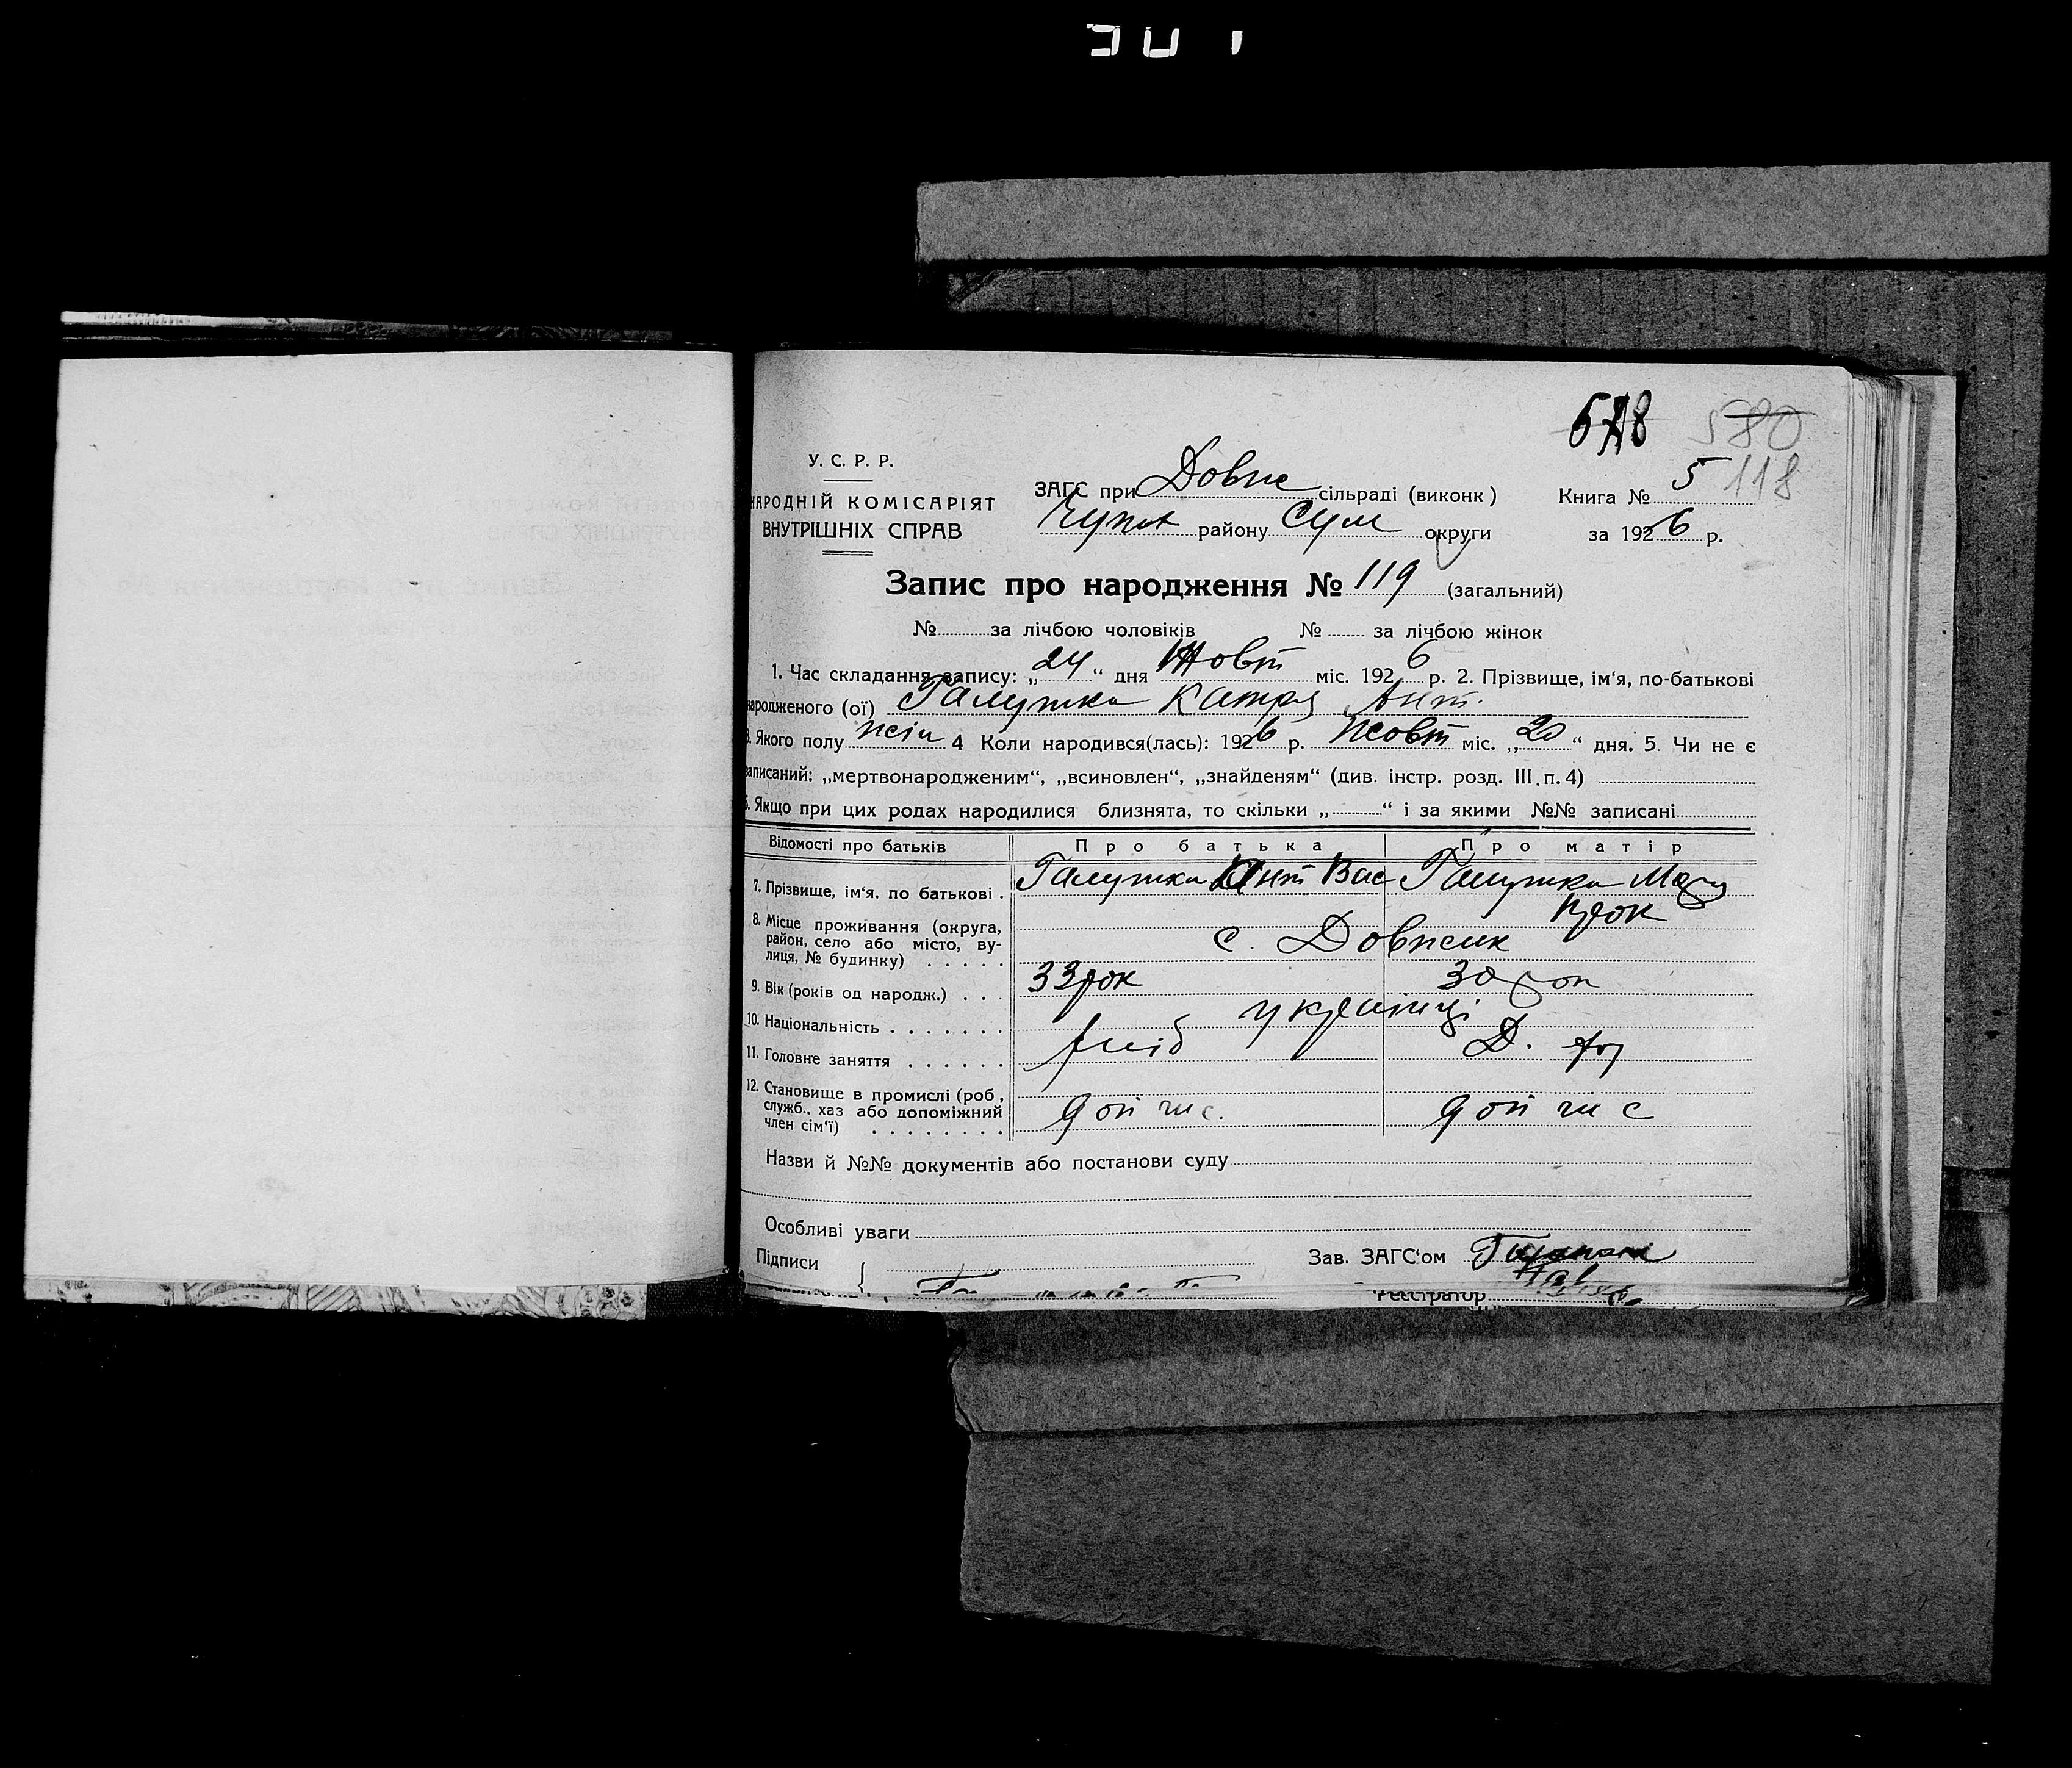 578 580
У. С. Р. Р.
НАРОДНІЙ КОМІСАРІЯТ
ВНУТРІШНІХ СПРАВ
ЗАГС при Довж сільраді (виконк)
району Сум округи
Книга № 5 118
за 1926 р.
Запис про народження № 119 (загальний)
№ за лічбою чоловіків № за лічбою жінок
1. Час складання запису: „24“ дня Жовт міс. 1926 р. 2. Прізвище, ім‘я, по-батькові
народженого (ої) Галушка Катря Ант.
3. Якого полу жін 4 Коли народився(лась): 1926 р. жовт міс. „20“ дня. 5. Чи не є
записаний: „мертвонародженим“, „всиновлен“, „знайденям“ (див. інстр. розд. III. п. 4)
6. Якщо при цих родах народилися близнята, то скільки „ “ і за якими №№ записані
Відомості про батьків Про батька Про матір
7. Прізвище, ім‘я, по батькові . Галушка Ант Вас Галушка Мар
8. Місце проживання (округа,
район, село або місто, ву-
лиця, № будинку) . . . . . с. Довжик
9. Вік (років од народж.) . . . 33 рок 30 рок
10. Національність . . . . . . . українці
11. Головне заняття . . . . . . хліб Д.
12. Становище в промислі (роб,
служб., хаз або допоміжний
член сім‘ї) . . . . . . . .
Назви й №№ документів або постанови суду
Особливі уваги
Підписи
Зав. ЗАГС‘ом
Реєстратор